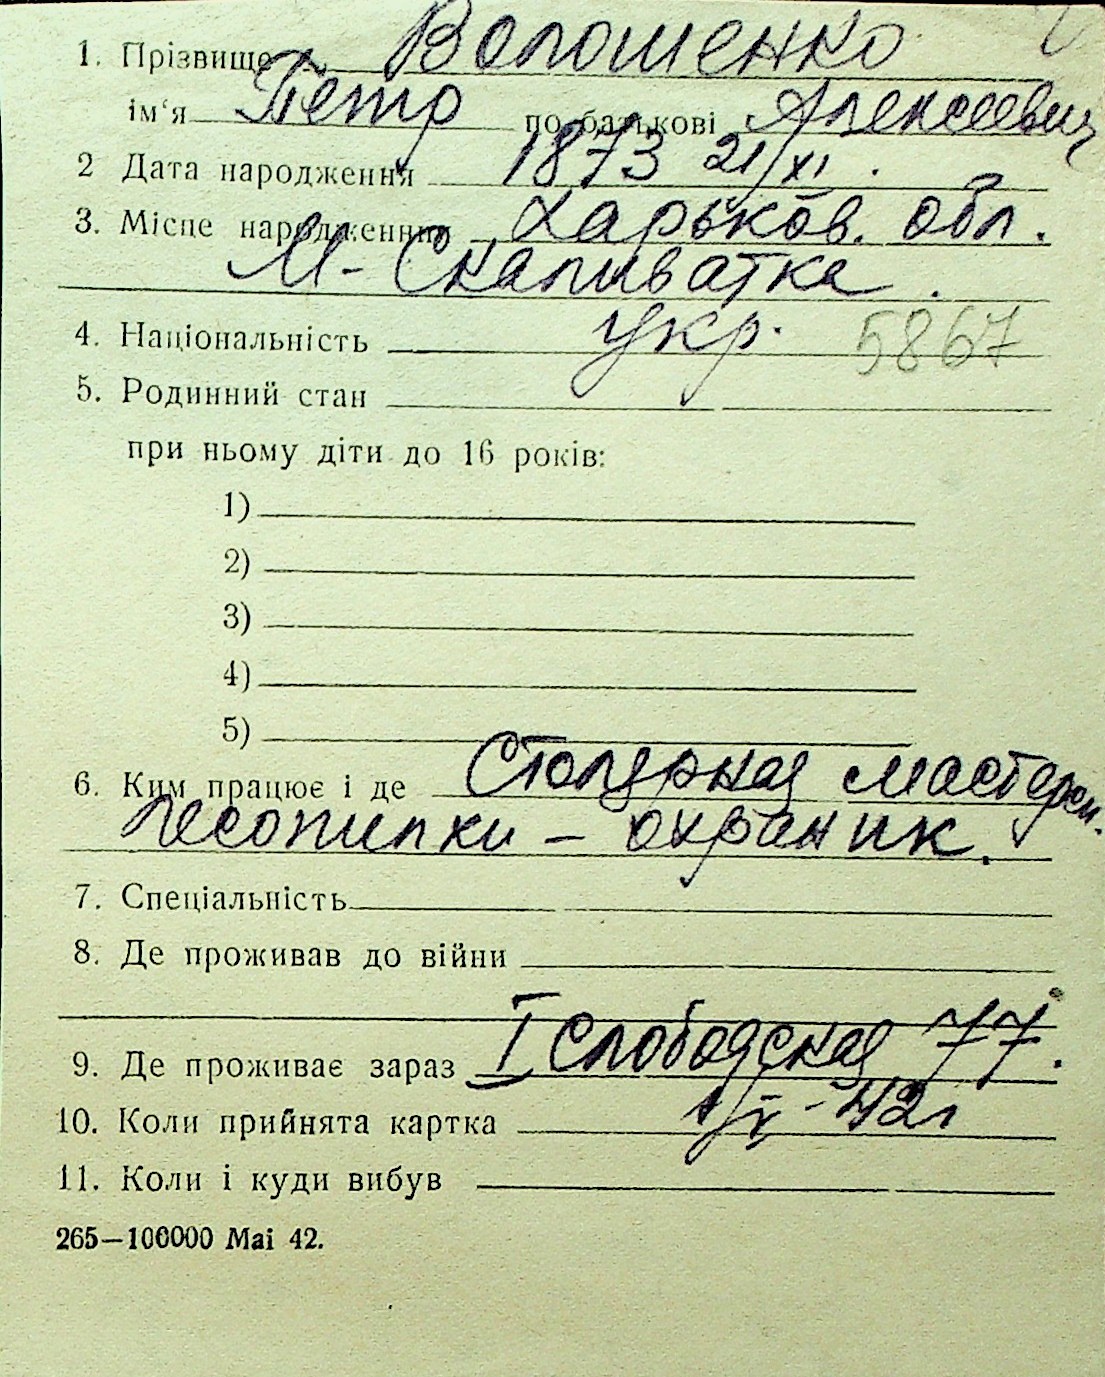 1. Прізвище Волошенко
ім'я Петр по батькові Алексеевич
2 Дата народження 1873 21/XI.
3. Місце народження Харьков. обл.
М-Скаливатка.
4. Національність укр. 5867
5. Родинний стан
при ньому діти до 16 років:
1)
2)
3)
4)
5)
6. Ким працює і де Столярная мастерск.
Лесопилки – охраник.
7. Спеціальність
8. Де проживав до війни
9. Де проживає зараз I Слободская 77.
10. Коли прийнята картка 1/V-42г
11. Коли і куди вибув
265—100000 Mai 42.